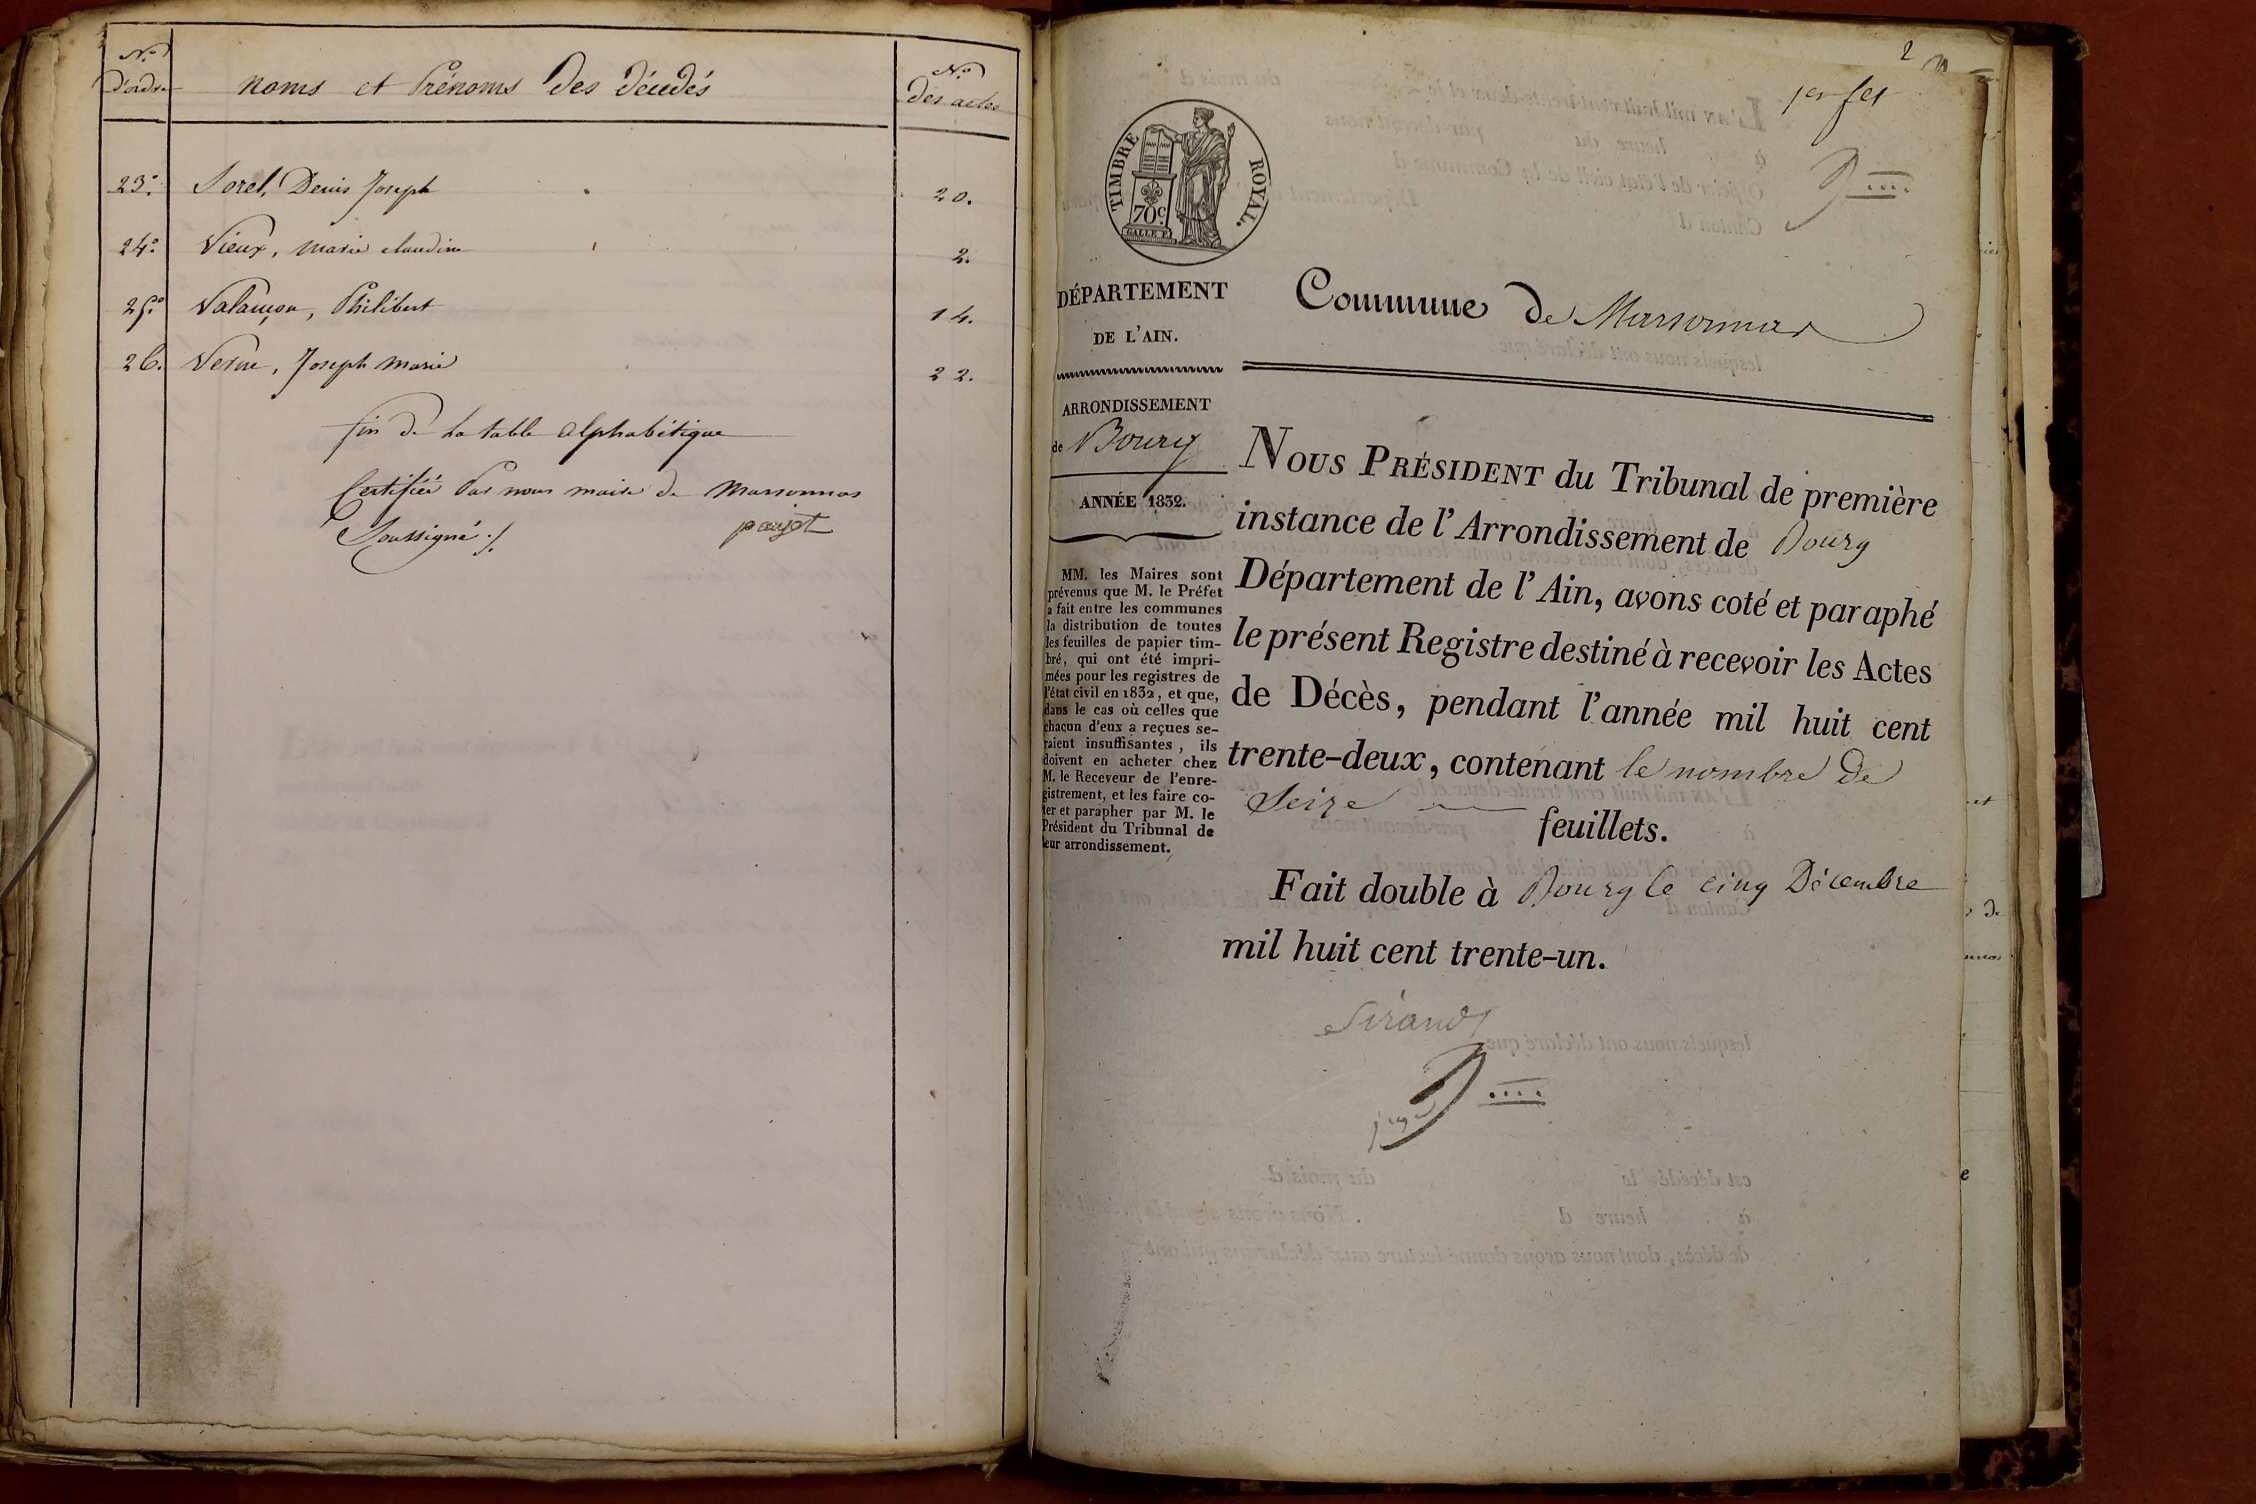 N.o
d'ordre
Noms et Prénoms des décédés
N.o
des actes
23.o Sorel, Denis Joseph 20.
24.o Vieux, marie claudine 2.
25.o Valançon, Philibert 14.
26. Verne, Joseph marie 22.
fin de la table alphabétique
Certifiée Par nous maire de marsonnas
Soussigné ./.
2
1er fet
TIMBRE ROYAL.
70c.
GALLE F.
DÉPARTEMENT
DE L'AIN.
ARRONDISSEMENT
de Bourg
ANNÉE 1832.
MM. les Maires sont
prévenus que M. le Préfet
a fait entre les communes
la distribution de toutes
les feuilles de papier tim-
bré, qui ont été impri-
mées pour les registres de
l'état civil en 1832, et que,
dans le cas où celles que
chacun d'eux a reçues se-
raient insuffisantes, ils
doivent en acheter chez
M. le Receveur de l'enre-
gistrement, et les faire co-
ter et parapher par M. le
Président du Tribunal de
leur arrondissement.
Commune de Marsonnas
NOUS PRÉSIDENT du Tribunal de première
instance de l'Arrondissement de Bourg
Département de l'Ain, avons coté et paraphé
le présent Registre destiné à recevoir les Actes
de Décès, pendant l'année mil huit cent
trente-deux, contenant le nombre de
Seize feuillets.
Fait double à Bourg le cinq Décembre
mil huit cent trente-un.
Sirand
juge